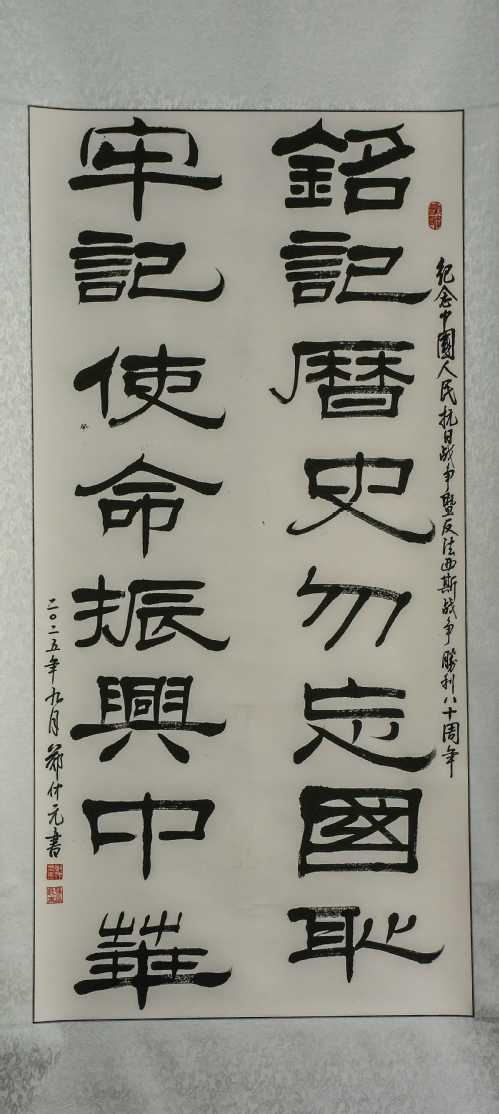 紀念中國人民抗日战争暨反法西斯战争勝利八十周年
銘記曆史勿忘國恥
牢記使命振興中華
二〇二五年九月 鄭付元書